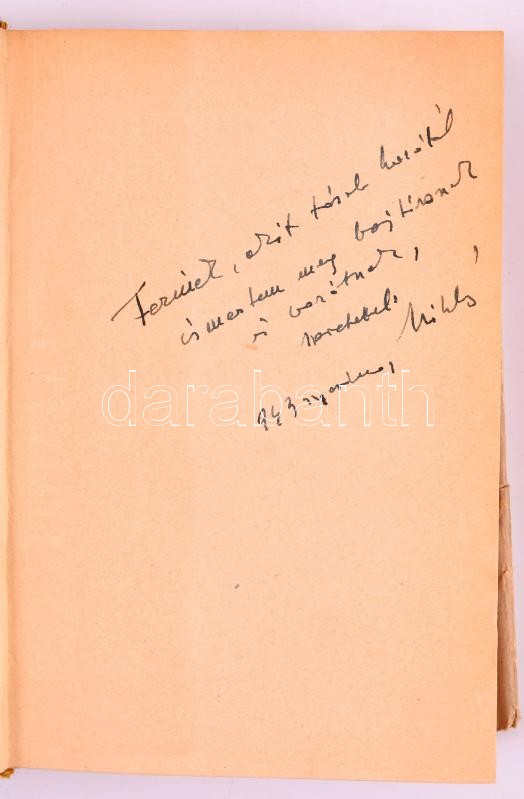 Ferinek, akit társak
ismertem meg bajtársnak
és barátnak,
szeretettel,
Miklós
943
darabanth